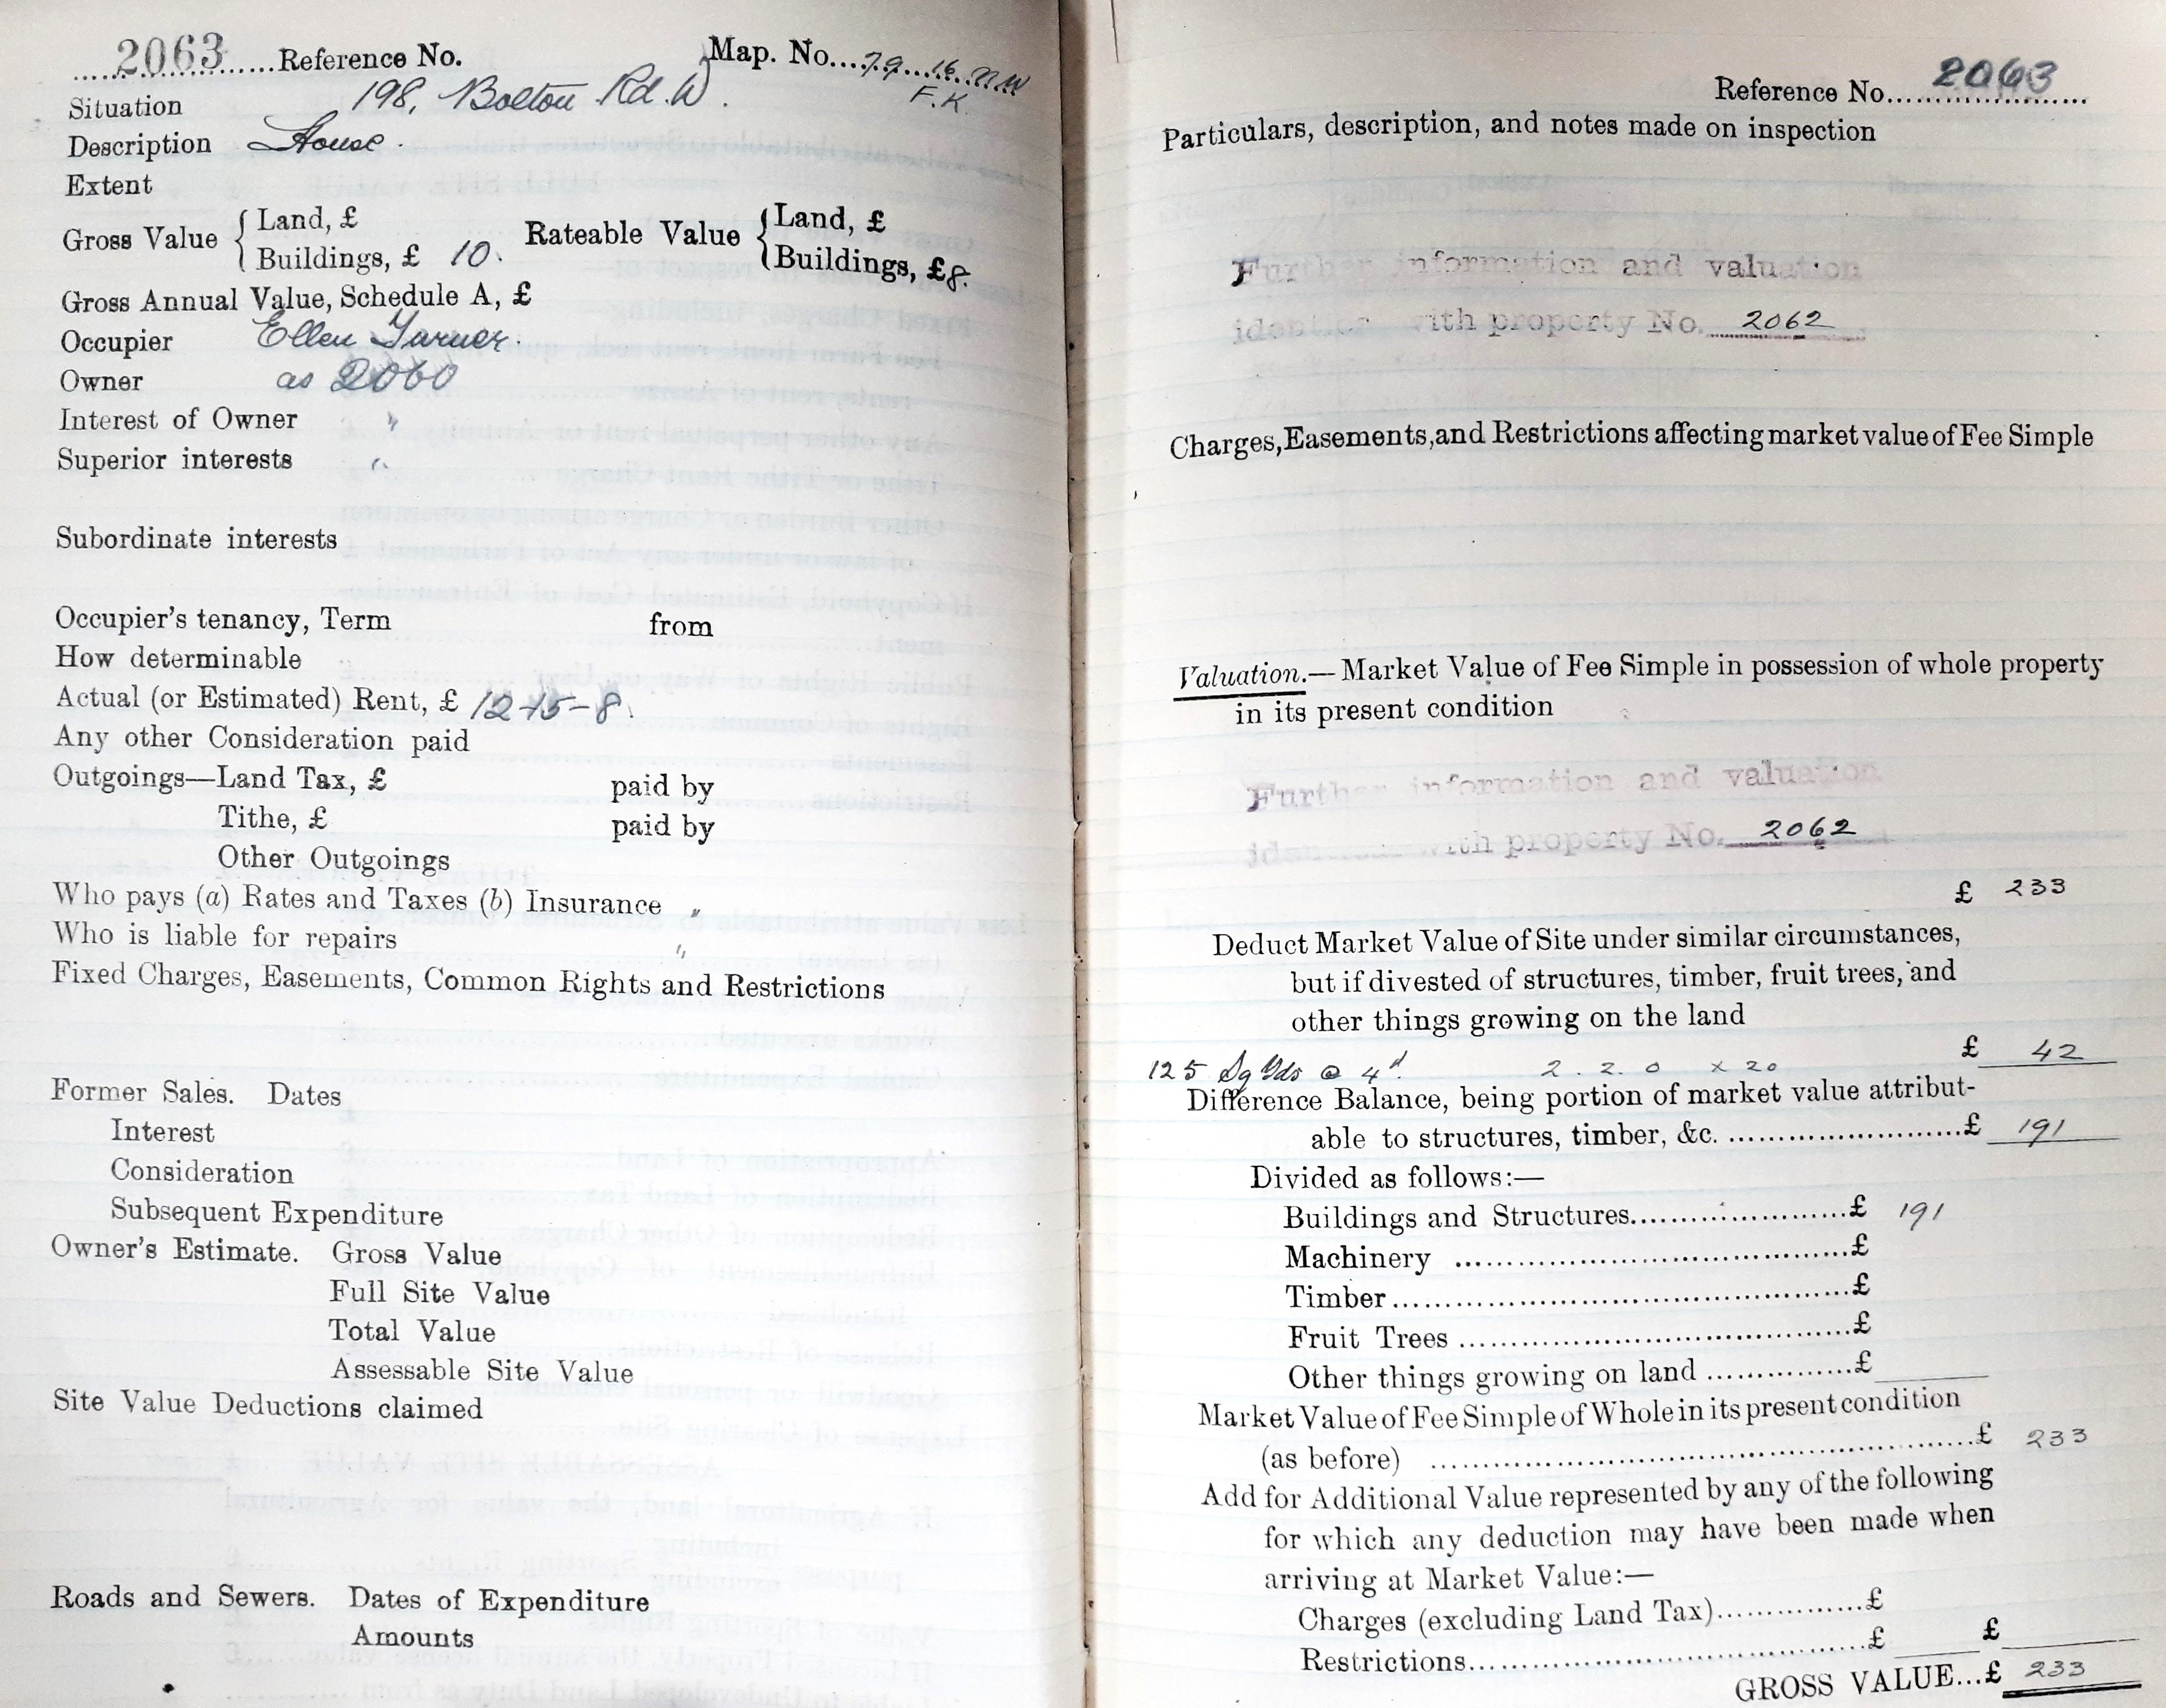 2063 Reference No. Map. No. 79 16 N.W
F.K.
Situation 198, Bolton Rd. W.
Description House.
Extent
Gross Value { Land, £ Rateable Value { Land, £
Buildings, £ 10. Buildings, £8.
Gross Annual Value, Schedule A, £
Occupier Ellen Turner.
Owner as 2060
Interest of Owner "
Superior interests "
Subordinate interests
Occupier's tenancy, Term from
How determinable
Actual (or Estimated) Rent, £ 12-15-8.
Any other Consideration paid
Outgoings—Land Tax, £ paid by
Tithe, £ paid by
Other Outgoings
Who pays (a) Rates and Taxes (b) Insurance "
Who is liable for repairs "
Fixed Charges, Easements, Common Rights and Restrictions
Former Sales. Dates
Interest
Consideration
Subsequent Expenditure
Owner's Estimate. Gross Value
Full Site Value
Total Value
Assessable Site Value
Site Value Deductions claimed
Roads and Sewers. Dates of Expenditure
Amounts
Reference No. 2063
Particulars, description, and notes made on inspection
Further information and valuation
identical with property No. 2062
Charges, Easements, and Restrictions affecting market value of Fee Simple
Valuation.—Market Value of Fee Simple in possession of whole property
in its present condition
Further information and valuation
identical with property No. 2062
£ 233
Deduct Market Value of Site under similar circumstances,
but if divested of structures, timber, fruit trees, and
other things growing on the land
£ 42
125 Sq Yds @ 4d. 2. 2. 0 x 20
Difference Balance, being portion of market value attribut-
able to structures, timber, &c. £ 191
Divided as follows:—
Buildings and Structures £ 191
Machinery £
Timber £
Fruit Trees £
Other things growing on land £
Market Value of Fee Simple of Whole in its present condition
(as before) £ 233
Add for Additional Value represented by any of the following
for which any deduction may have been made when
arriving at Market Value:—
Charges (excluding Land Tax) £
Restrictions £ £
GROSS VALUE...£ 233